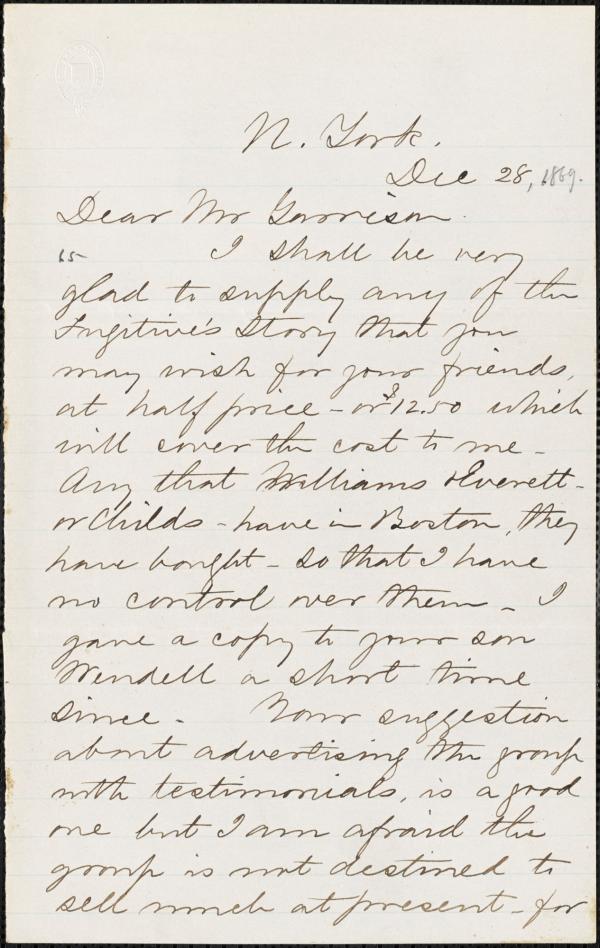 N. York.
Dec 28, 1869.
Dear Mr Garrison.
I shall be very
glad to supply any of the
Fugitive's Story that you
may wish for your friends,
at half price - or $12.50 which
will cover the cost to me -
Any that Williams & Everett -
or Childs - have in Boston, they
have bought - so that I have
no control over them - I
gave a copy to your son
Wendell a short time
since - Your suggestion
about advertising the group
with testimonials, is a good
one but I am afraid the
group is not destined to
sell much at present - for